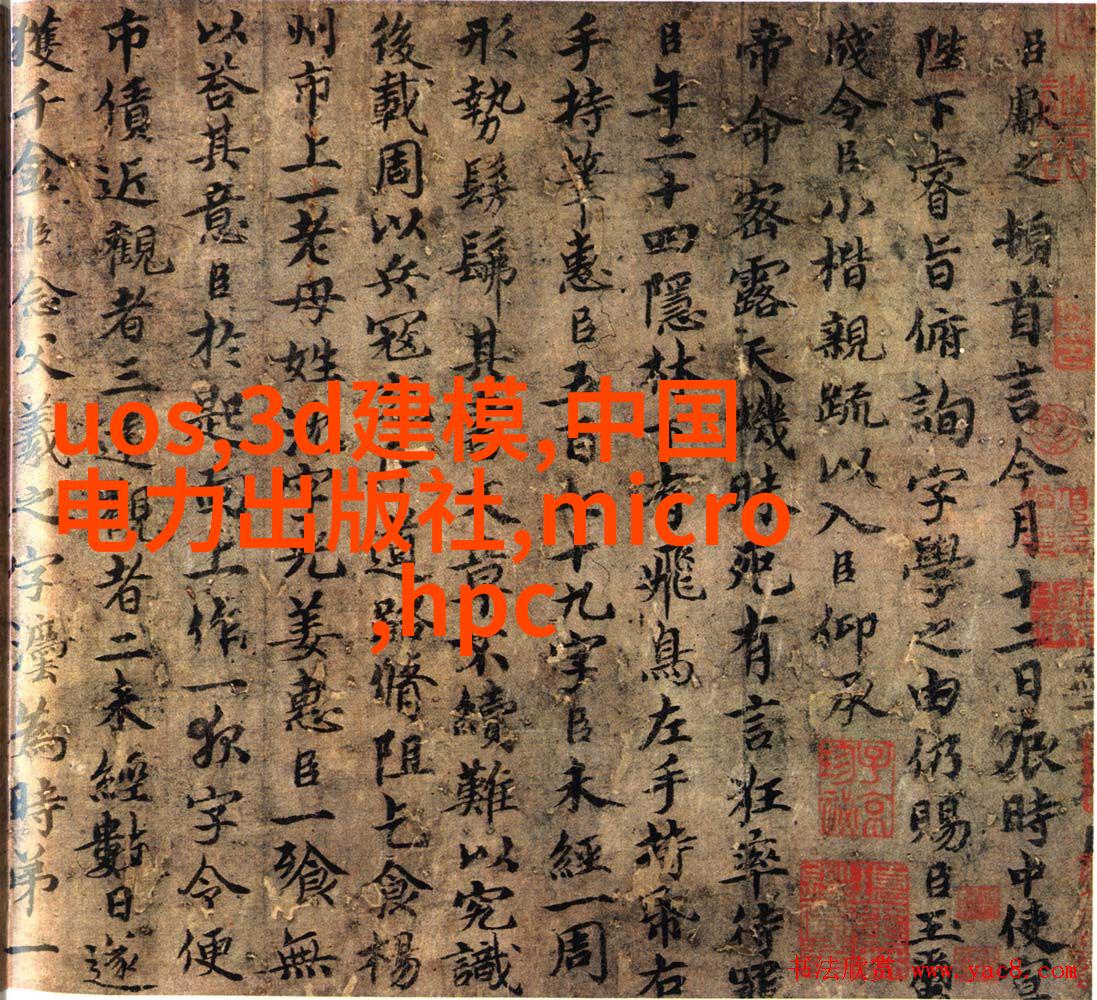 臣獻之頓首言今月十三日辰時中使宣
陛下睿旨俯詢字學之由仍賜臣玉
牋令臣小楷親疏以入臣仰承
帝命密露天機肘死有言言狂率待罪
臣年二十四隱林下有飛鳥左手持帋右
手持筆惠臣五百七十九字臣未經一周
形勢髣髴其書文章不續難以究識
後載周以兵寇道路脩阻乞食楊
州市上一老母姓沈字光姜惠臣一飱無
以荅其意臣於匙面上作一夜字令便
市債近觀者三遠觀者二未經數日遂
獲千金臣念父羲之字為時第一
uos,3d建模,中国
电力出版社,micro
,hpc
书法欣赏 www.yac8.com